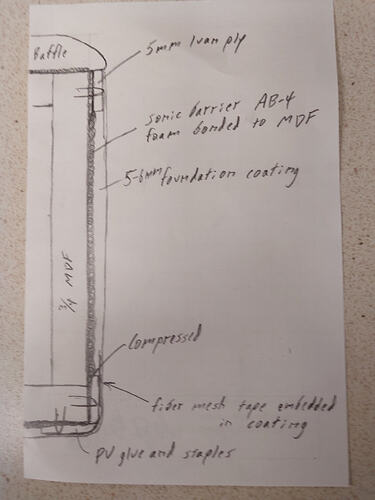 Baffle
5mm luan ply
sonic barrier AB-4
foam bonded to MDF
5-6mm foundation coating
3/4 MDF
compressed
fiber mesh tape embedded
in coating
PV glue and staples